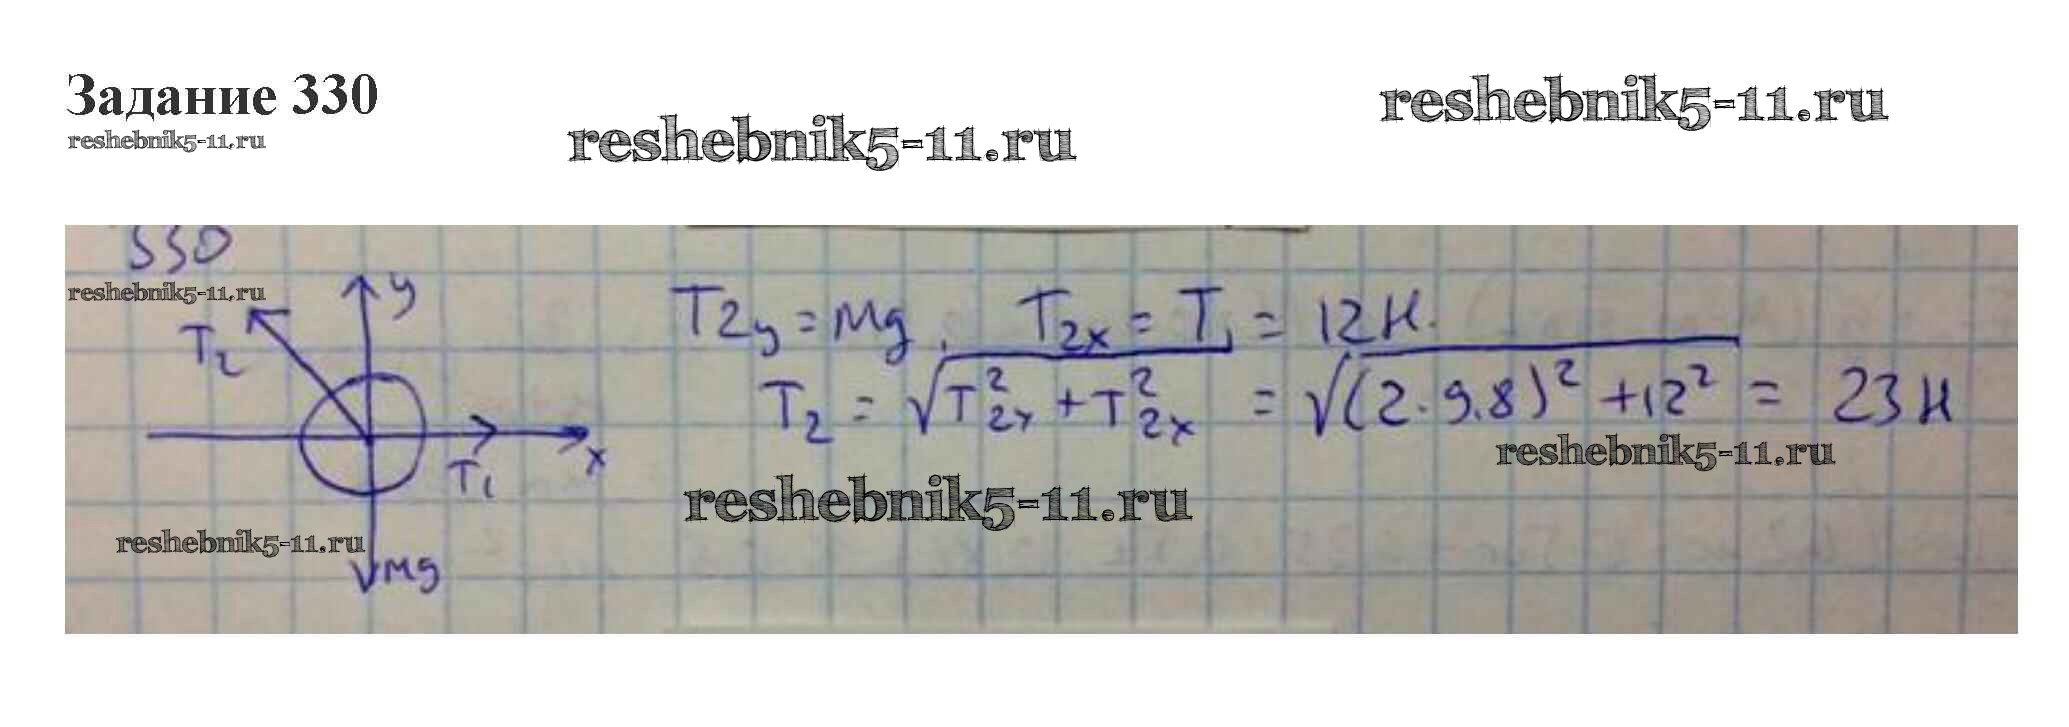 Задание 330
reshebnik5-11.ru
reshebnik5-11.ru
reshebnik5-11.ru
330
reshebnik5-11.ru
y
T₂
x
T₁
mg
reshebnik5-11.ru
T₂y = mg, T₂x = T₁ = 12 Н.
T₂ = √(T²₂y + T²₂x) = √((2·9.8)² + 12²) = 23 Н
reshebnik5-11.ru
reshebnik5-11.ru